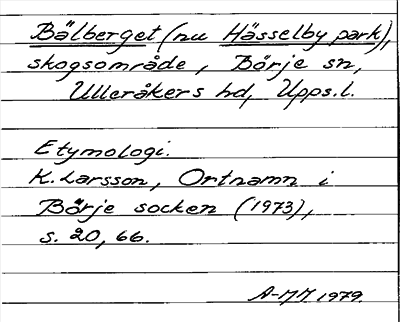 Bälberget (nu Hässelby park),
skogsområde, Börje sn,
Ulleråkers hd, Upps.l.
Etymologi.
K. Larsson, Ortnamn i
Börje socken (1973),
s. 20, 66.
A-MM 1979.